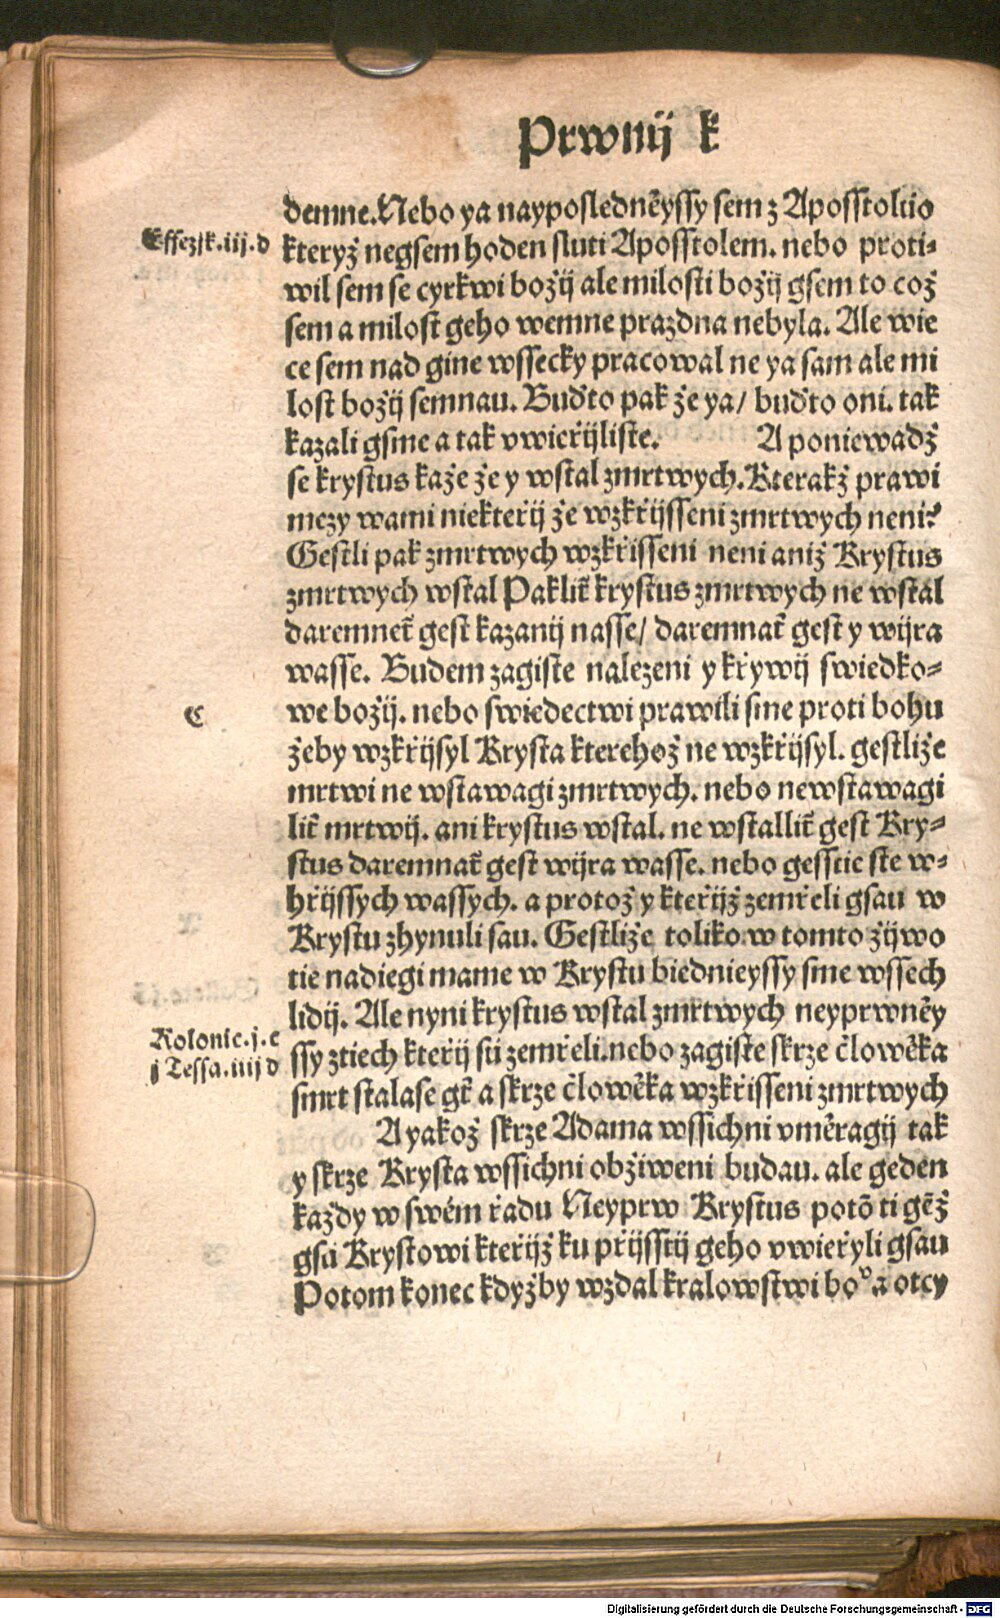 Prwnij k̓
demne. Nebo ya nayposledněyssy sem z Aposstoluo
Effezsk. iij. d
kteryž negsem hoden sluti Aposstolem. nebo proti⸗
wil sem se cyrkwi božij ale milosti božij gsem to což
sem a milost geho wemne prazdna nebyla. Ale wie
ce sem nad gine wssecky pracowal ne ya sam ale mi
lost božij semnau. Buďto pak že ya/ buďto oni. tak
kazali gsme a tak vwieřijliste. A poniewadž
se krystus kaže že y wstal zmrtwych. Kterakž prawi
mezy wami niekteřij že wzkřijsseni zmrtwych neni?
Gestli pak zmrtwych wzkřisseni neni aniž Krystus
zmrtwych wstal Paklit̓ krystus zmrtwych ne wstal
daremnet̓ gest kazanij nasse/ daremnat̓ gest y wijra
wasse. Budem zagiste nalezeni y křywij swiedko⸗
C
we božij. nebo swiedectwi prawili sme proti bohu
žeby wzkřijsyl Krysta kterehož ne wzkřijsyl. gestliže
mrtwi ne wstawagi zmrtwych. nebo newstawagi
lit̓ mrtwij. ani krystus wstal. ne wstallit̓ gest Kry⸗
stus daremnat̓ gest wijra wasse. nebo gesstie ste w⸗
hřijssych wassych. a protož y kteřijž zemřeli gsau w
Krystu zhynuli sau. Gestliže toliko w tomto žijwo
tie nadiegi mame w Krystu biednieyssy sme wssech
lidij. Ale nyni krystus wstal zmrtwych neyprwněy
Kolonic. j. c
ssy ztiech kteřij sú zemřeli. nebo zagiste skrze člowěka
j Tessa. iiij d
smrt stalase gt̓ a skrze člowěka wzkřisseni zmrtwych
A yakož skrze Adama wssichni vměragij tak
y skrze Krysta wssichni obžiweni budau. ale geden
každy w swém řadu Neyprw Krystus potō ti gēž
gsú Krystowi kteřijž ku přijsstij geho vwieřyli gsau
Potom konec kdyžby wzdal kralowstwi boᵛ a otcy
Digitalisierung gefördert durch die Deutsche Forschungsgemeinschaft - DFG